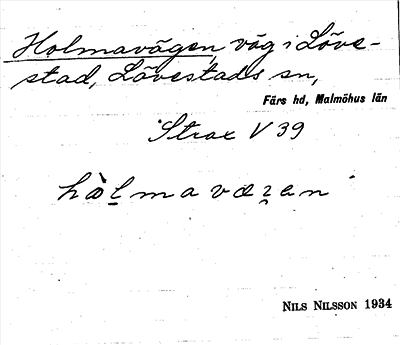 Holmavägen, väg i Löve-
stad, Lövestads sn,
Färs hd, Malmöhus län
Strax V 39
hòl̲mavæʒen
NILS NILSSON 1934